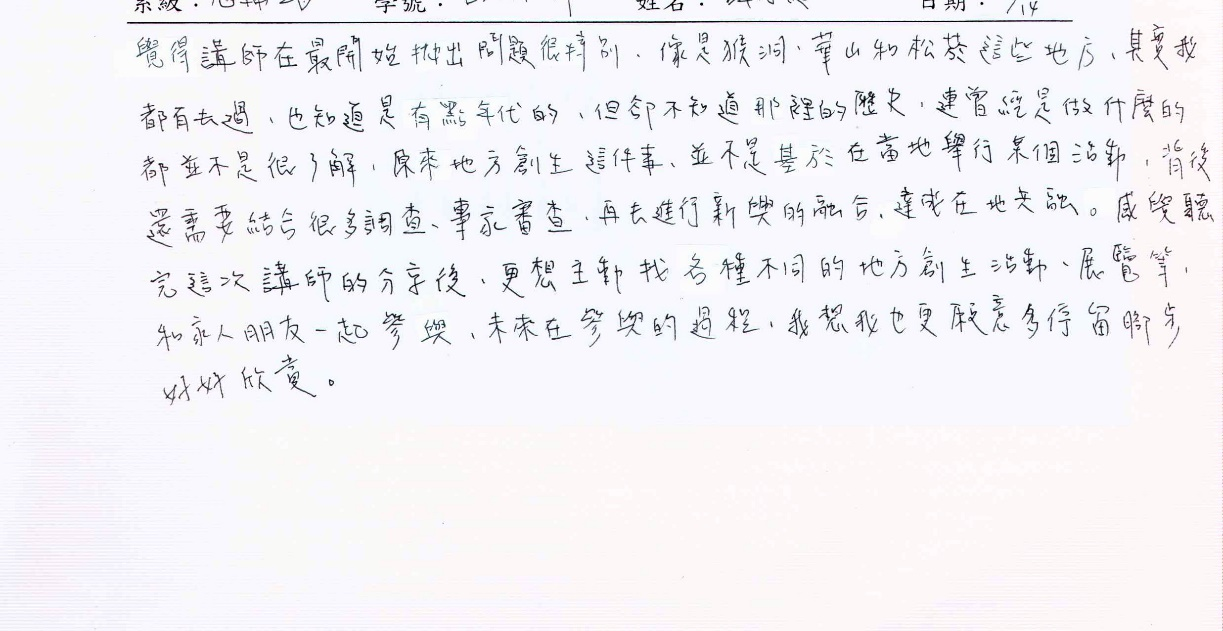 系級: 學號: 姓名: 日期: /14
覺得講師在最開始拋出問題很特別、像是猴洞、華山和松菸這些地方、其實我
都有去過、也知道是有點年代的、但卻不知道那裡的歷史、連曾經是做什麼的
都並不是很了解、原來地方創生這件事、並不是基於在當地舉行某個活動、背後
還需要結合很多調查、專家審查、再去進行新與的融合、達成在地共融。感覺聽
完這次講師的分享後、更想主動找各種不同的地方創生活動、展覽等、
和家人朋友一起參與、未來在參與的過程、我想我也更願意多停留腳步
好好欣賞。